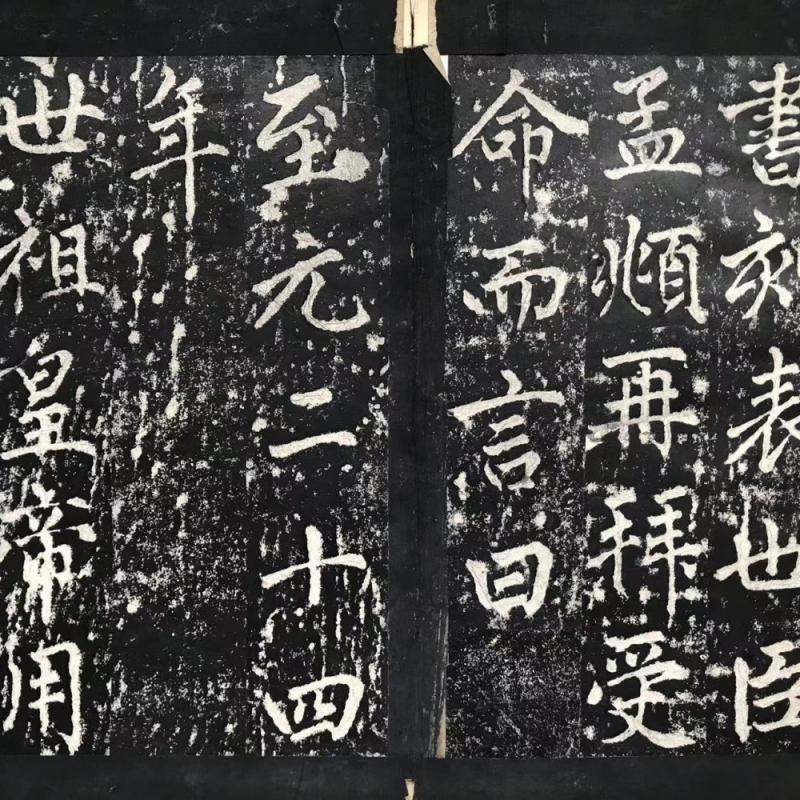 書刻表也臣
孟頫再拜受
命而言曰
至元二十四
年
世祖皇帝用